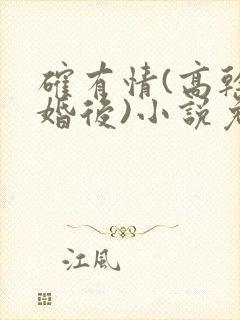 確有情(高幹
婚後)小説免
江風